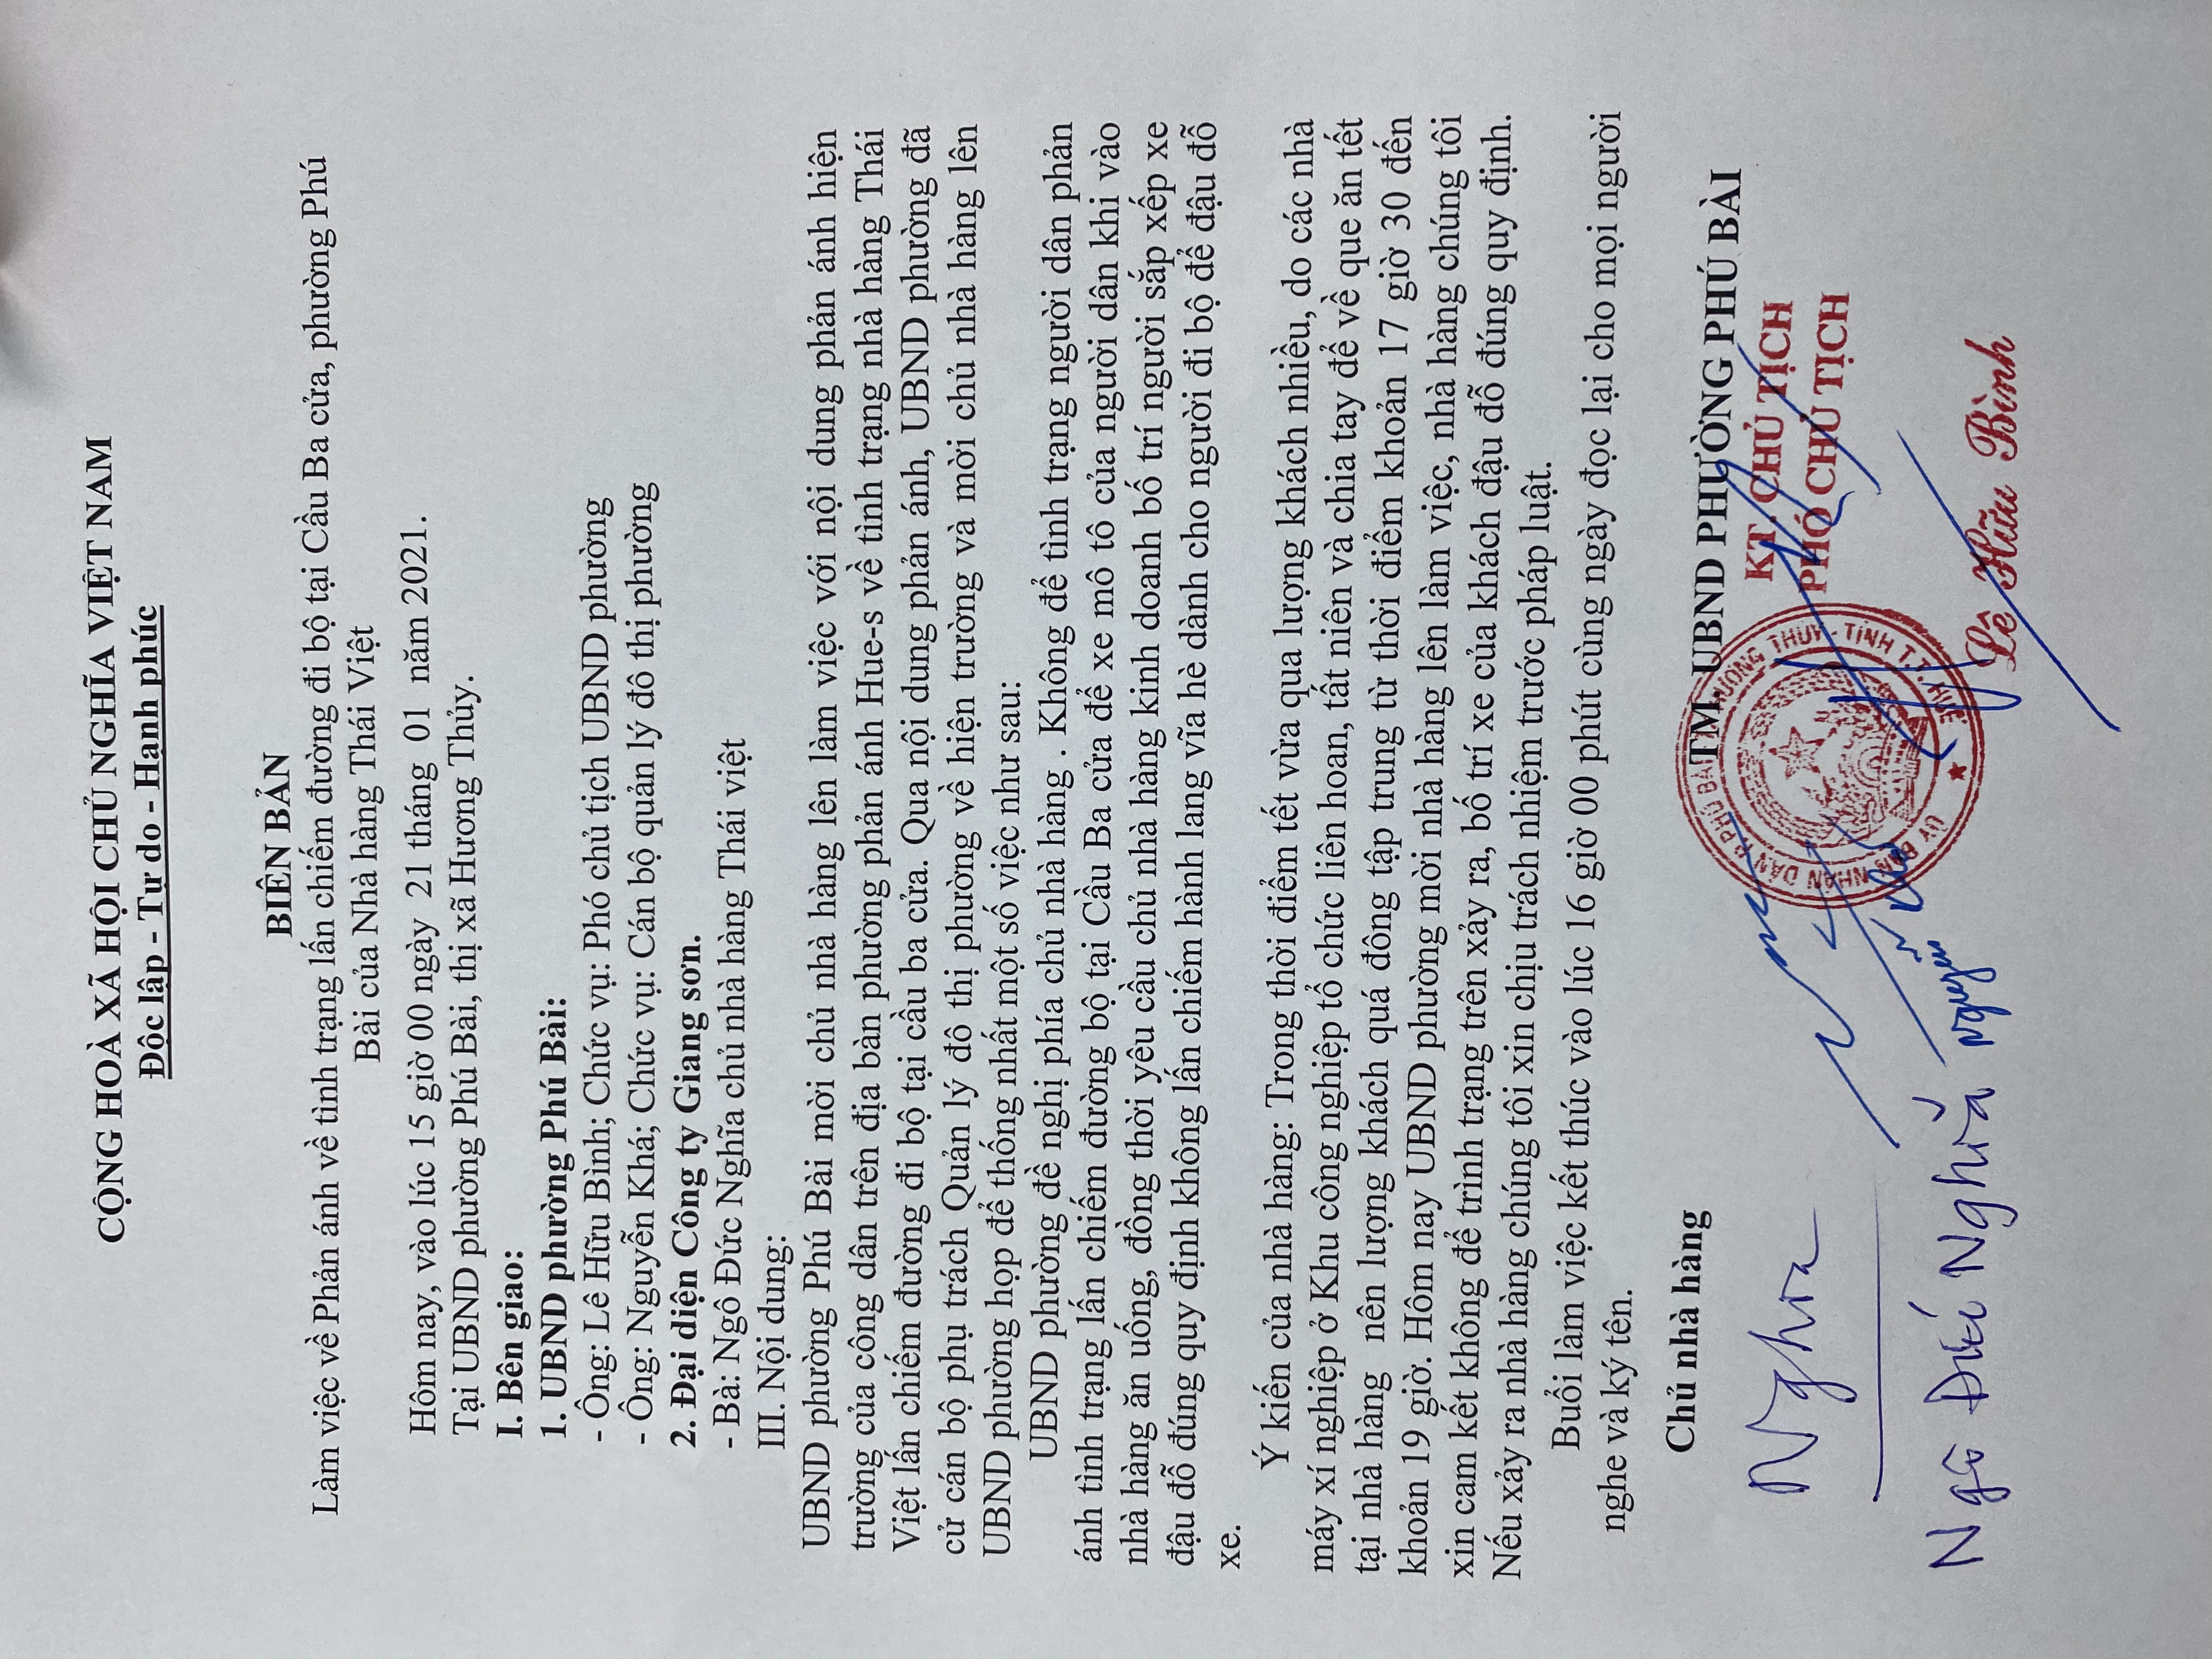 CỘNG HOÀ XÃ HỘI CHỦ NGHĨA VIỆT NAM
Độc lập - Tự do - Hạnh phúc
BIÊN BẢN
Làm việc về Phản ánh về tình trạng lấn chiếm đường đi bộ tại Cầu Ba cửa, phường Phú
Bài của Nhà hàng Thái Việt
Hôm nay, vào lúc 15 giờ 00 ngày 21 tháng 01 năm 2021.
Tại UBND phường Phú Bài, thị xã Hương Thủy.
I. Bên giao:
1. UBND phường Phú Bài:
- Ông: Lê Hữu Bình; Chức vụ: Phó chủ tịch UBND phường
- Ông: Nguyễn Khá; Chức vụ: Cán bộ quản lý đô thị phường
2. Đại diện Công ty Giang sơn.
- Bà: Ngô Đức Nghĩa chủ nhà hàng Thái việt
III. Nội dung:
UBND phường Phú Bài mời chủ nhà hàng lên làm việc với nội dung phản ánh hiện
trường của công dân trên địa bàn phường phản ánh Hue-s về tình trạng nhà hàng Thái
Việt lấn chiếm đường đi bộ tại cầu ba cửa. Qua nội dung phản ánh, UBND phường đã
cử cán bộ phụ trách Quản lý đô thị phường về hiện trường và mời chủ nhà hàng lên
UBND phường họp để thống nhất một số việc như sau:
UBND phường đề nghị phía chủ nhà hàng . Không để tình trạng người dân phản
ánh tình trạng lấn chiếm đường bộ tại Cầu Ba cửa để xe mô tô của người dân khi vào
nhà hàng ăn uống, đồng thời yêu cầu chủ nhà hàng kinh doanh bố trí người sắp xếp xe
đậu đỗ đúng quy định không lấn chiếm hành lang vĩa hè dành cho người đi bộ để đậu đỗ
xe.
Ý kiến của nhà hàng: Trong thời điểm tết vừa qua lượng khách nhiều, do các nhà
máy xí nghiệp ở Khu công nghiệp tổ chức liên hoan, tất niên và chia tay để về que ăn tết
tại nhà hàng nên lượng khách quá đông tập trung từ thời điểm khoản 17 giờ 30 đến
khoản 19 giờ. Hôm nay UBND phường mời nhà hàng lên làm việc, nhà hàng chúng tôi
xin cam kết không để trình trạng trên xảy ra, bố trí xe của khách đậu đỗ đúng quy định.
Nếu xảy ra nhà hàng chúng tôi xin chịu trách nhiệm trước pháp luật.
Buổi làm việc kết thúc vào lúc 16 giờ 00 phút cùng ngày đọc lại cho mọi người
nghe và ký tên.
Chủ nhà hàng
TM. UBND PHƯỜNG PHÚ BÀI
KT. CHỦ TỊCH
PHÓ CHỦ TỊCH
Nghĩa
Ngô Đức Nghĩa
Nguyễn
Lê Hữu Bình
ỦY BAN NHÂN DÂN P. PHÚ BÀI
HƯƠNG THỦY - TỈNH T.T. HUẾ